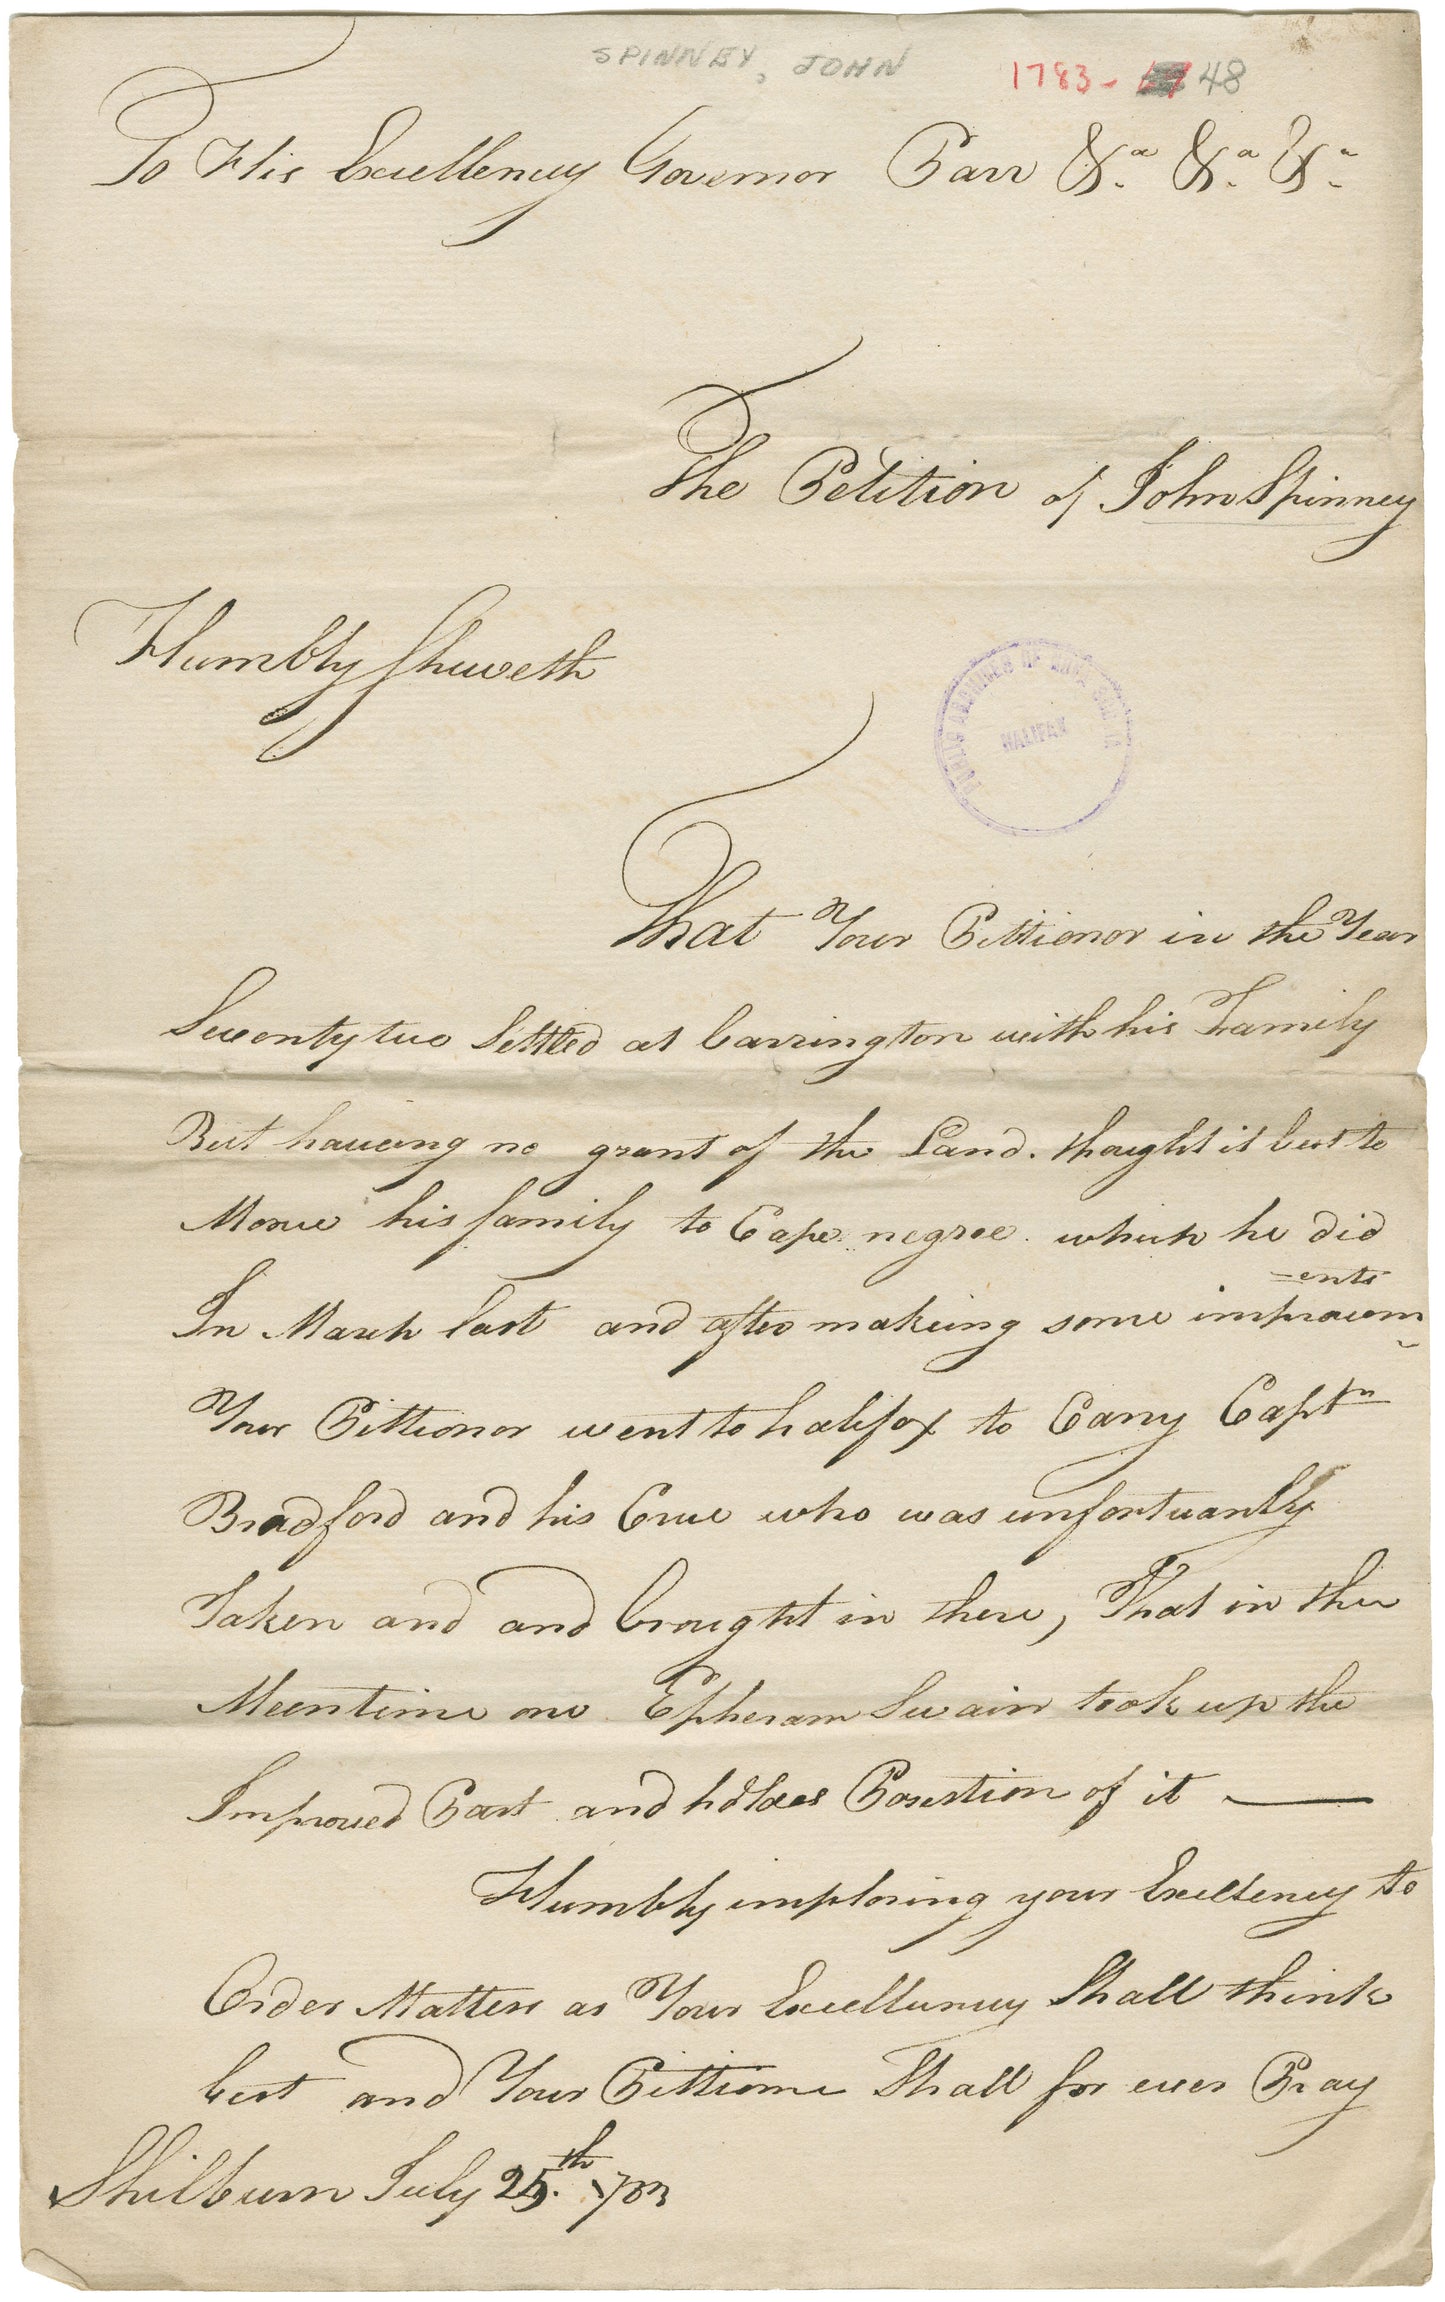 SPINNEY, JOHN
1783- 48
To His Excellency Governor Parr &a. &a. &a.
The Petition of John Spinney
Humbly Sheweth
PUBLIC ARCHIVES OF NOVA SCOTIA
HALIFAX
That Your Pittionor in the Year
Seventytwo Settled at barrington with his Family
But haveing no grant of the Land. thought it best to
Move his family to Cape negroe. which he did
-ents
In March last and after making some improvem
Your Pittionor went to halifax to Carry Captn
Bradford and his Crue who was unfortuantly
Taken and and brought in there, That in the
Meentime one Epheram Swain took up the
Improved Part and holdes Posestion of it
Humbly imploring your Exellency to
Order Matters as Your Excellency Shall think
best and Your Pittione Shall for ever Pray
Shilburn July 25th. 1783